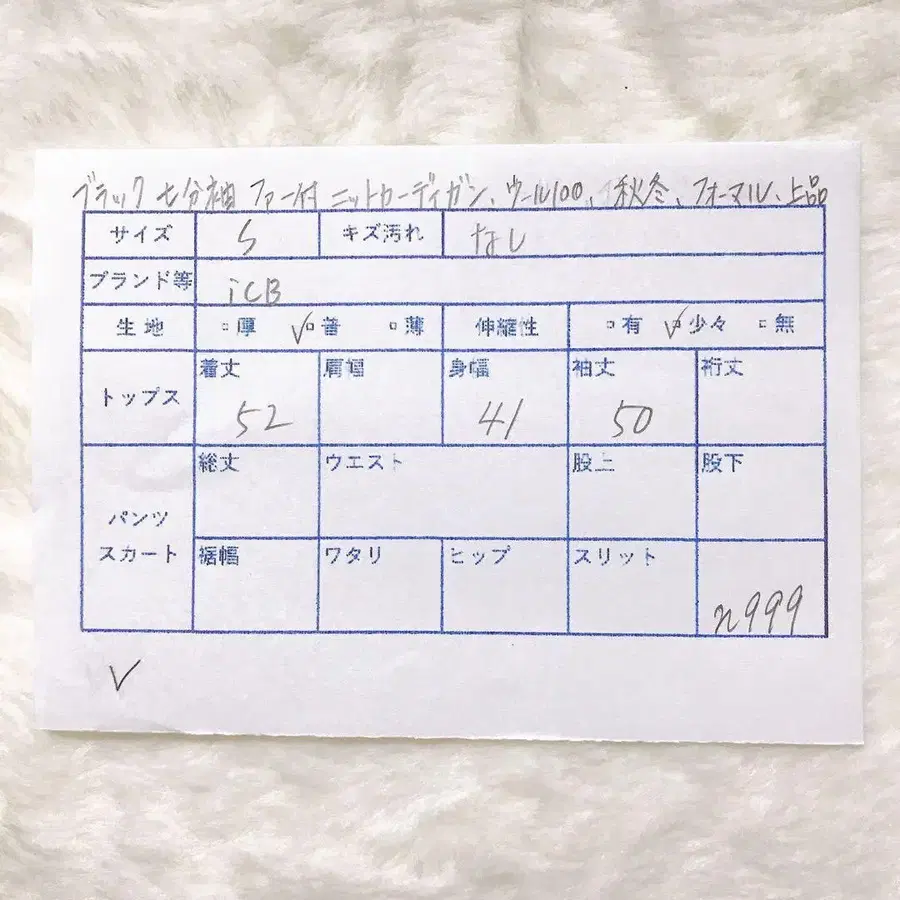 ブラック 七分袖 ファー付 ニットカーディガン、ウール100、秋冬、フォーマル、上品
サイズ S キズ汚れ なし
ブランド等 iCB
生地 □厚 ✓□普 □薄 伸縮性 □有 ✓□少々 □無
トップス 着丈 肩幅 身幅 袖丈 裄丈
52 41 50
総丈 ウエスト 股上 股下
パンツ
スカート 裾幅 ワタリ ヒップ スリット
n999
✓